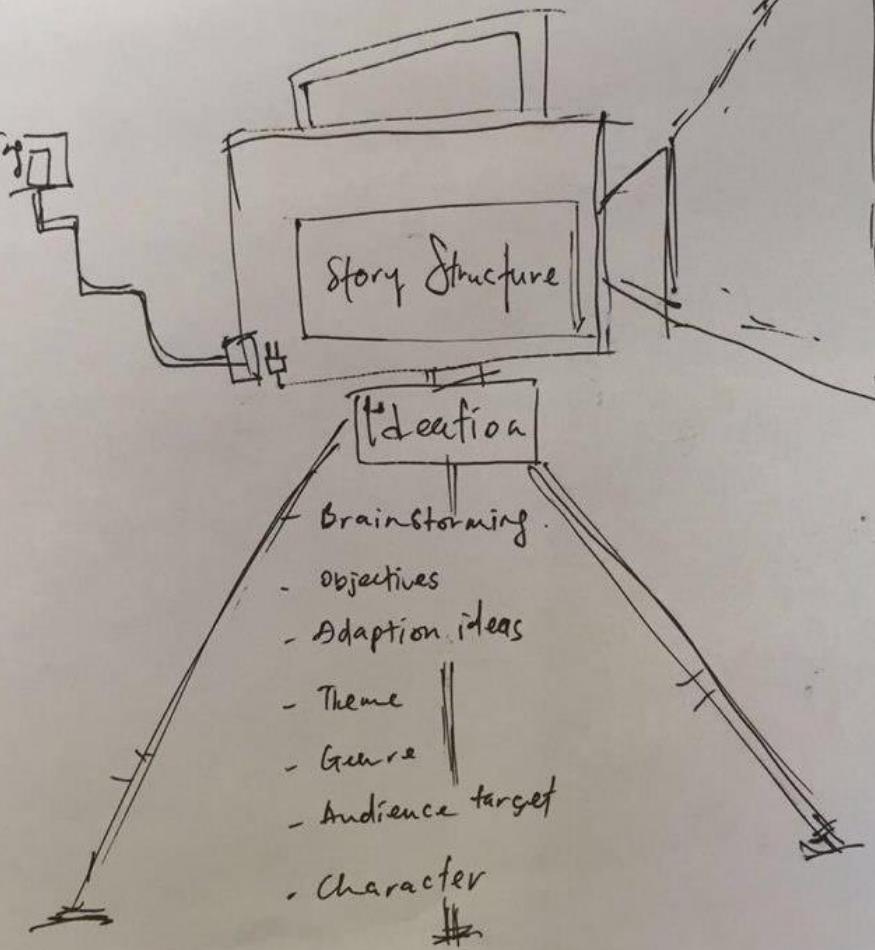 Story Structure
Ideation
- Brainstorming.
- Objectives
- Adaption ideas
- Theme
- Genre
- Audience target
- Character